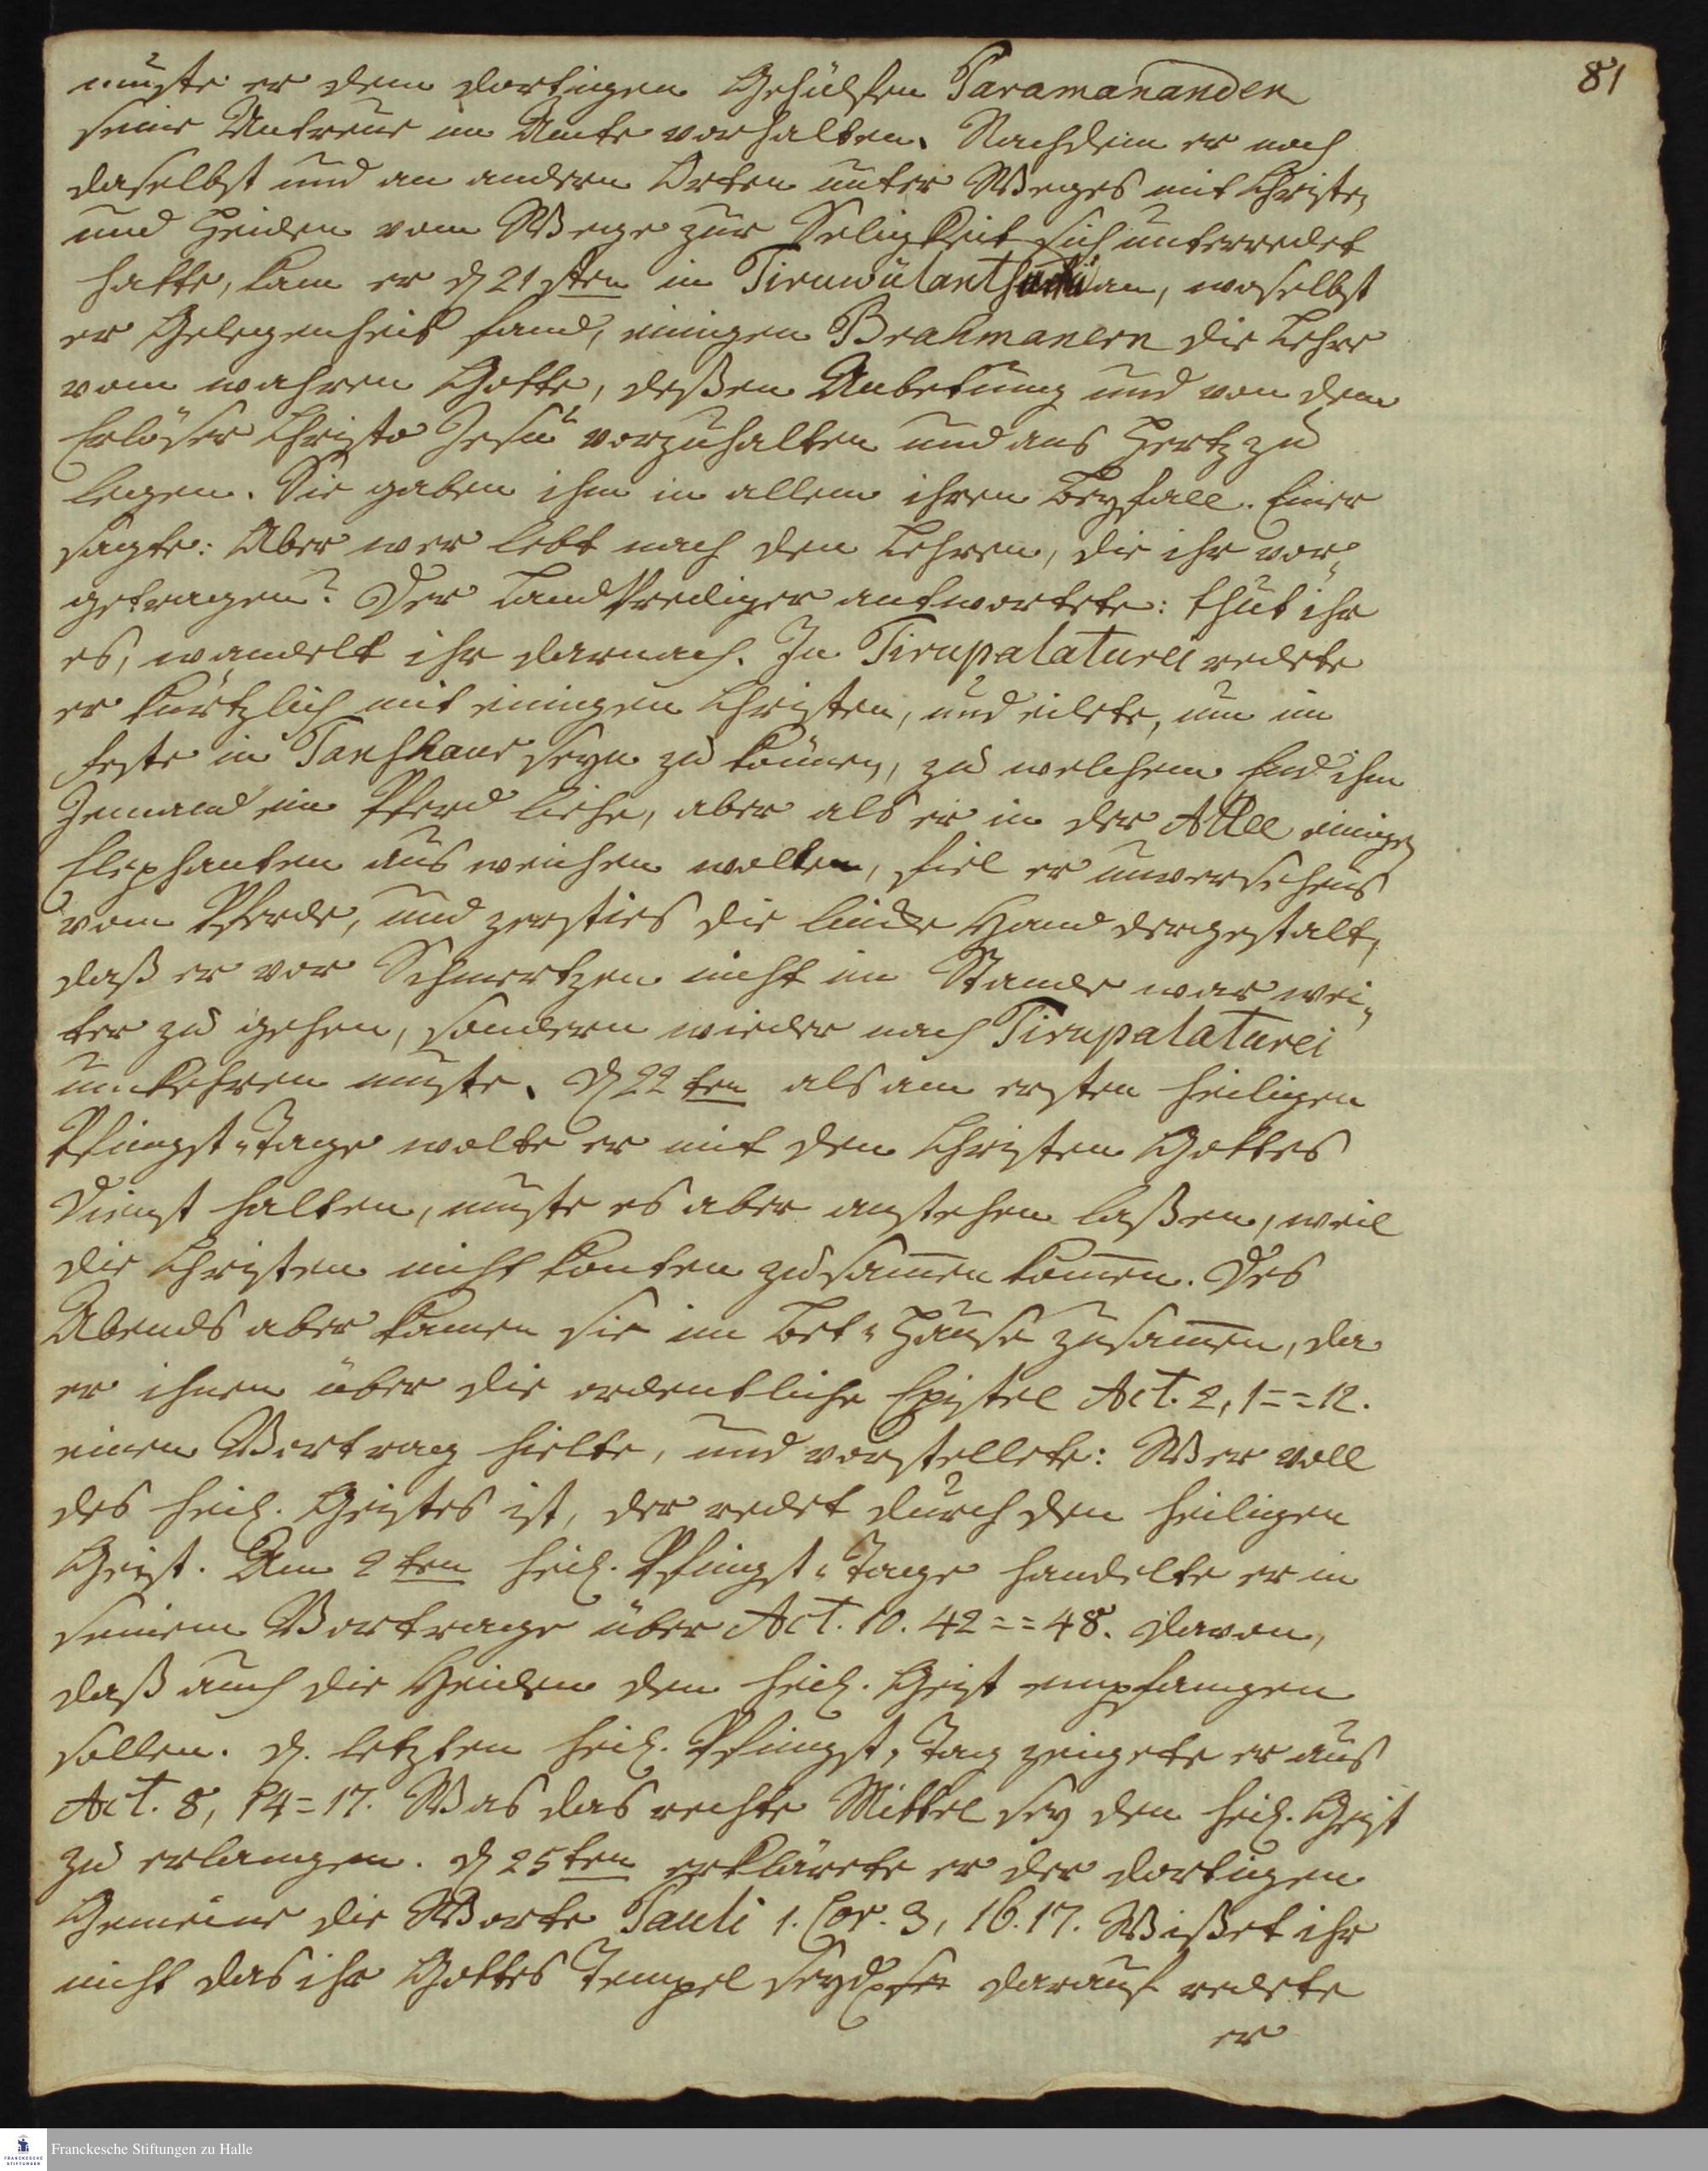 81
muste er dem dortigen Gehülfen Paramananden
seine Untreue im Amte vorhalten. Nachdem er noch
daselbst und an andern Orten unter Weges mit Christen
und Heiden vom Wege zur Seligkeit sich unterredet
hatte, kam er d 21sten in an, woselbst
er Gelegenheit fand, einigen Brahmanern die Lehre
vom wahren Gotte, deßen Anbetung und von dem
Erlöser Christo Jesu vorzuhalten und ans Hertz zu
legen. Sie gaben ihm in allem ihren Beyfall. Einer
sagte: Aber wer lebt nach den Lehren, die ihr vor-
getragen? Der Landprediger antwortete: thut ihr
es, wandelt ihr darnach. In Tirupalaturei redete
er kürtzlich mit einigen Christen, und eilete, um im
Feste in Tanshaur seyn zu können, zu welchem End ihm
Jemand ein Pferd liehe, aber als er in der Allee einigen
Elephanten ausweichen wolten, fiel er unversehens
vom Pferde, und zersties die lincke Hand dergestalt,
daß er vor Schmertzen nicht im Stande war wei-
ter zu gehen, sondern wieder nach Tirupalaturei
umkehren muste. d 22ten als am ersten heiligen
Pfingst-Tage wolte er mit den Christen Gottes
Dienst halten, muste es aber anstehen laßen, weil
die Christen nicht konten zusam̅en kom̅en. Des
Abends aber kamen sie im Bet-Hause zusam̅en, da
er ihnen über die ordentliche Epistel Act. 2, 1==12.
einen Vortrag hielte, und vorstellete: Wer voll
des heil. Geistes ist, der redet durch den heiligen
Geist. Am 2ten heil. Pfingst-Tage handelte er in
seinem Vortrage über Act. 10. 42==48. davon,
daß auch die Heiden den heil. Geist empfangen
sollen. d. letzten heil. Pfingst-Tag zeigete er aus
Act. 8, 14=17. Was das rechte Mittel sey den heil. Geist
zu erlangen. d 25ten erklärete er der dortigen
Gemeine die Worte Pauli 1. Cor. 3, 16.17. Wißet ihr
nicht das ihr Gottes Tempel seyd darauf redete
er
Franckesche Stiftungen zu Halle
FRANCKESCHE
STIFTUNGEN